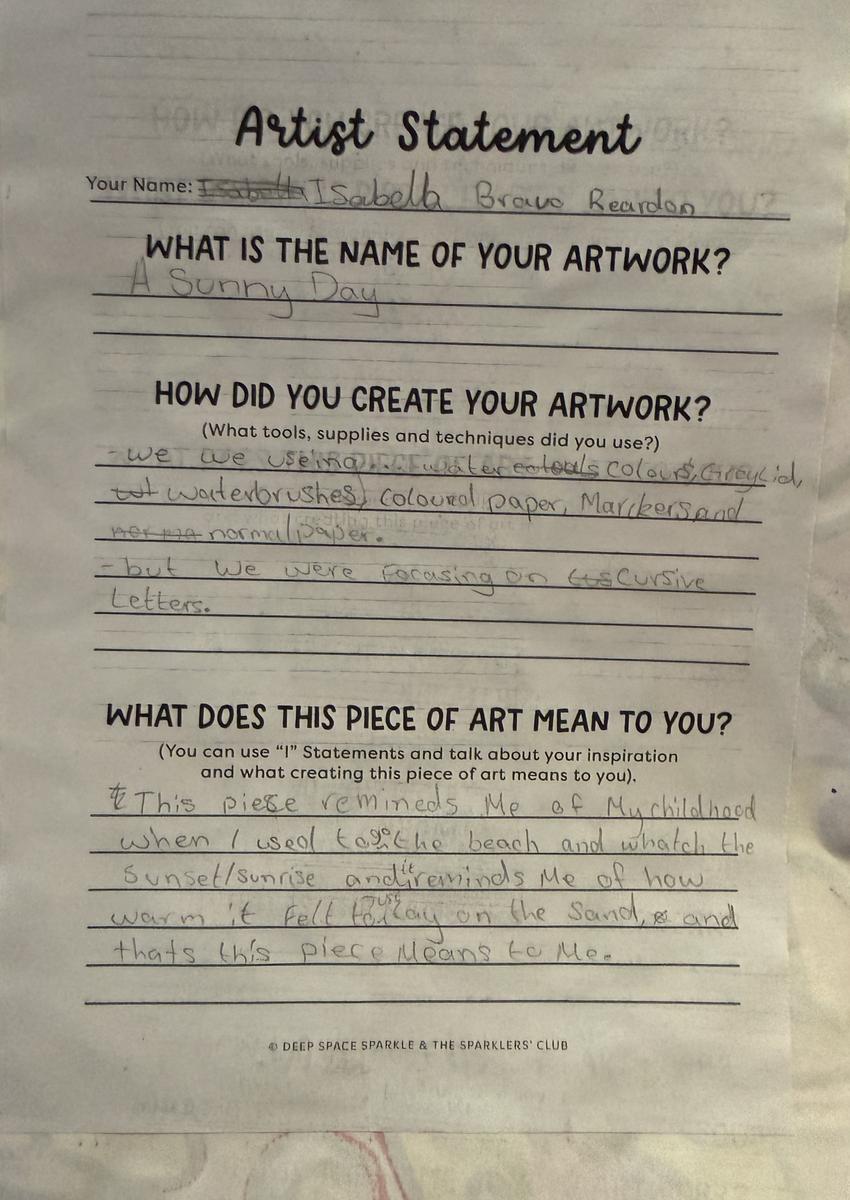 Artist Statement
Your Name: Isabella Isabella Bravo Reardon
WHAT IS THE NAME OF YOUR ARTWORK?
A Sunny Day
HOW DID YOU CREATE YOUR ARTWORK?
(What tools, supplies and techniques did you use?)
- we we useing... water colours, Greylid,
waterbrushes, coloured paper, Marckers and
normal paper.
- but we were forcusing on Cursive
Letters.
WHAT DOES THIS PIECE OF ART MEAN TO YOU?
(You can use "I" Statements and talk about your inspiration
and what creating this piece of art means to you).
This piece remineds Me of My childhood
when I used to go the beach and whatch the
Sunset/sunrise and it reminds Me of how
warm it felt to just lay on the Sand, and
thats this piece Means to Me.
© DEEP SPACE SPARKLE & THE SPARKLERS' CLUB